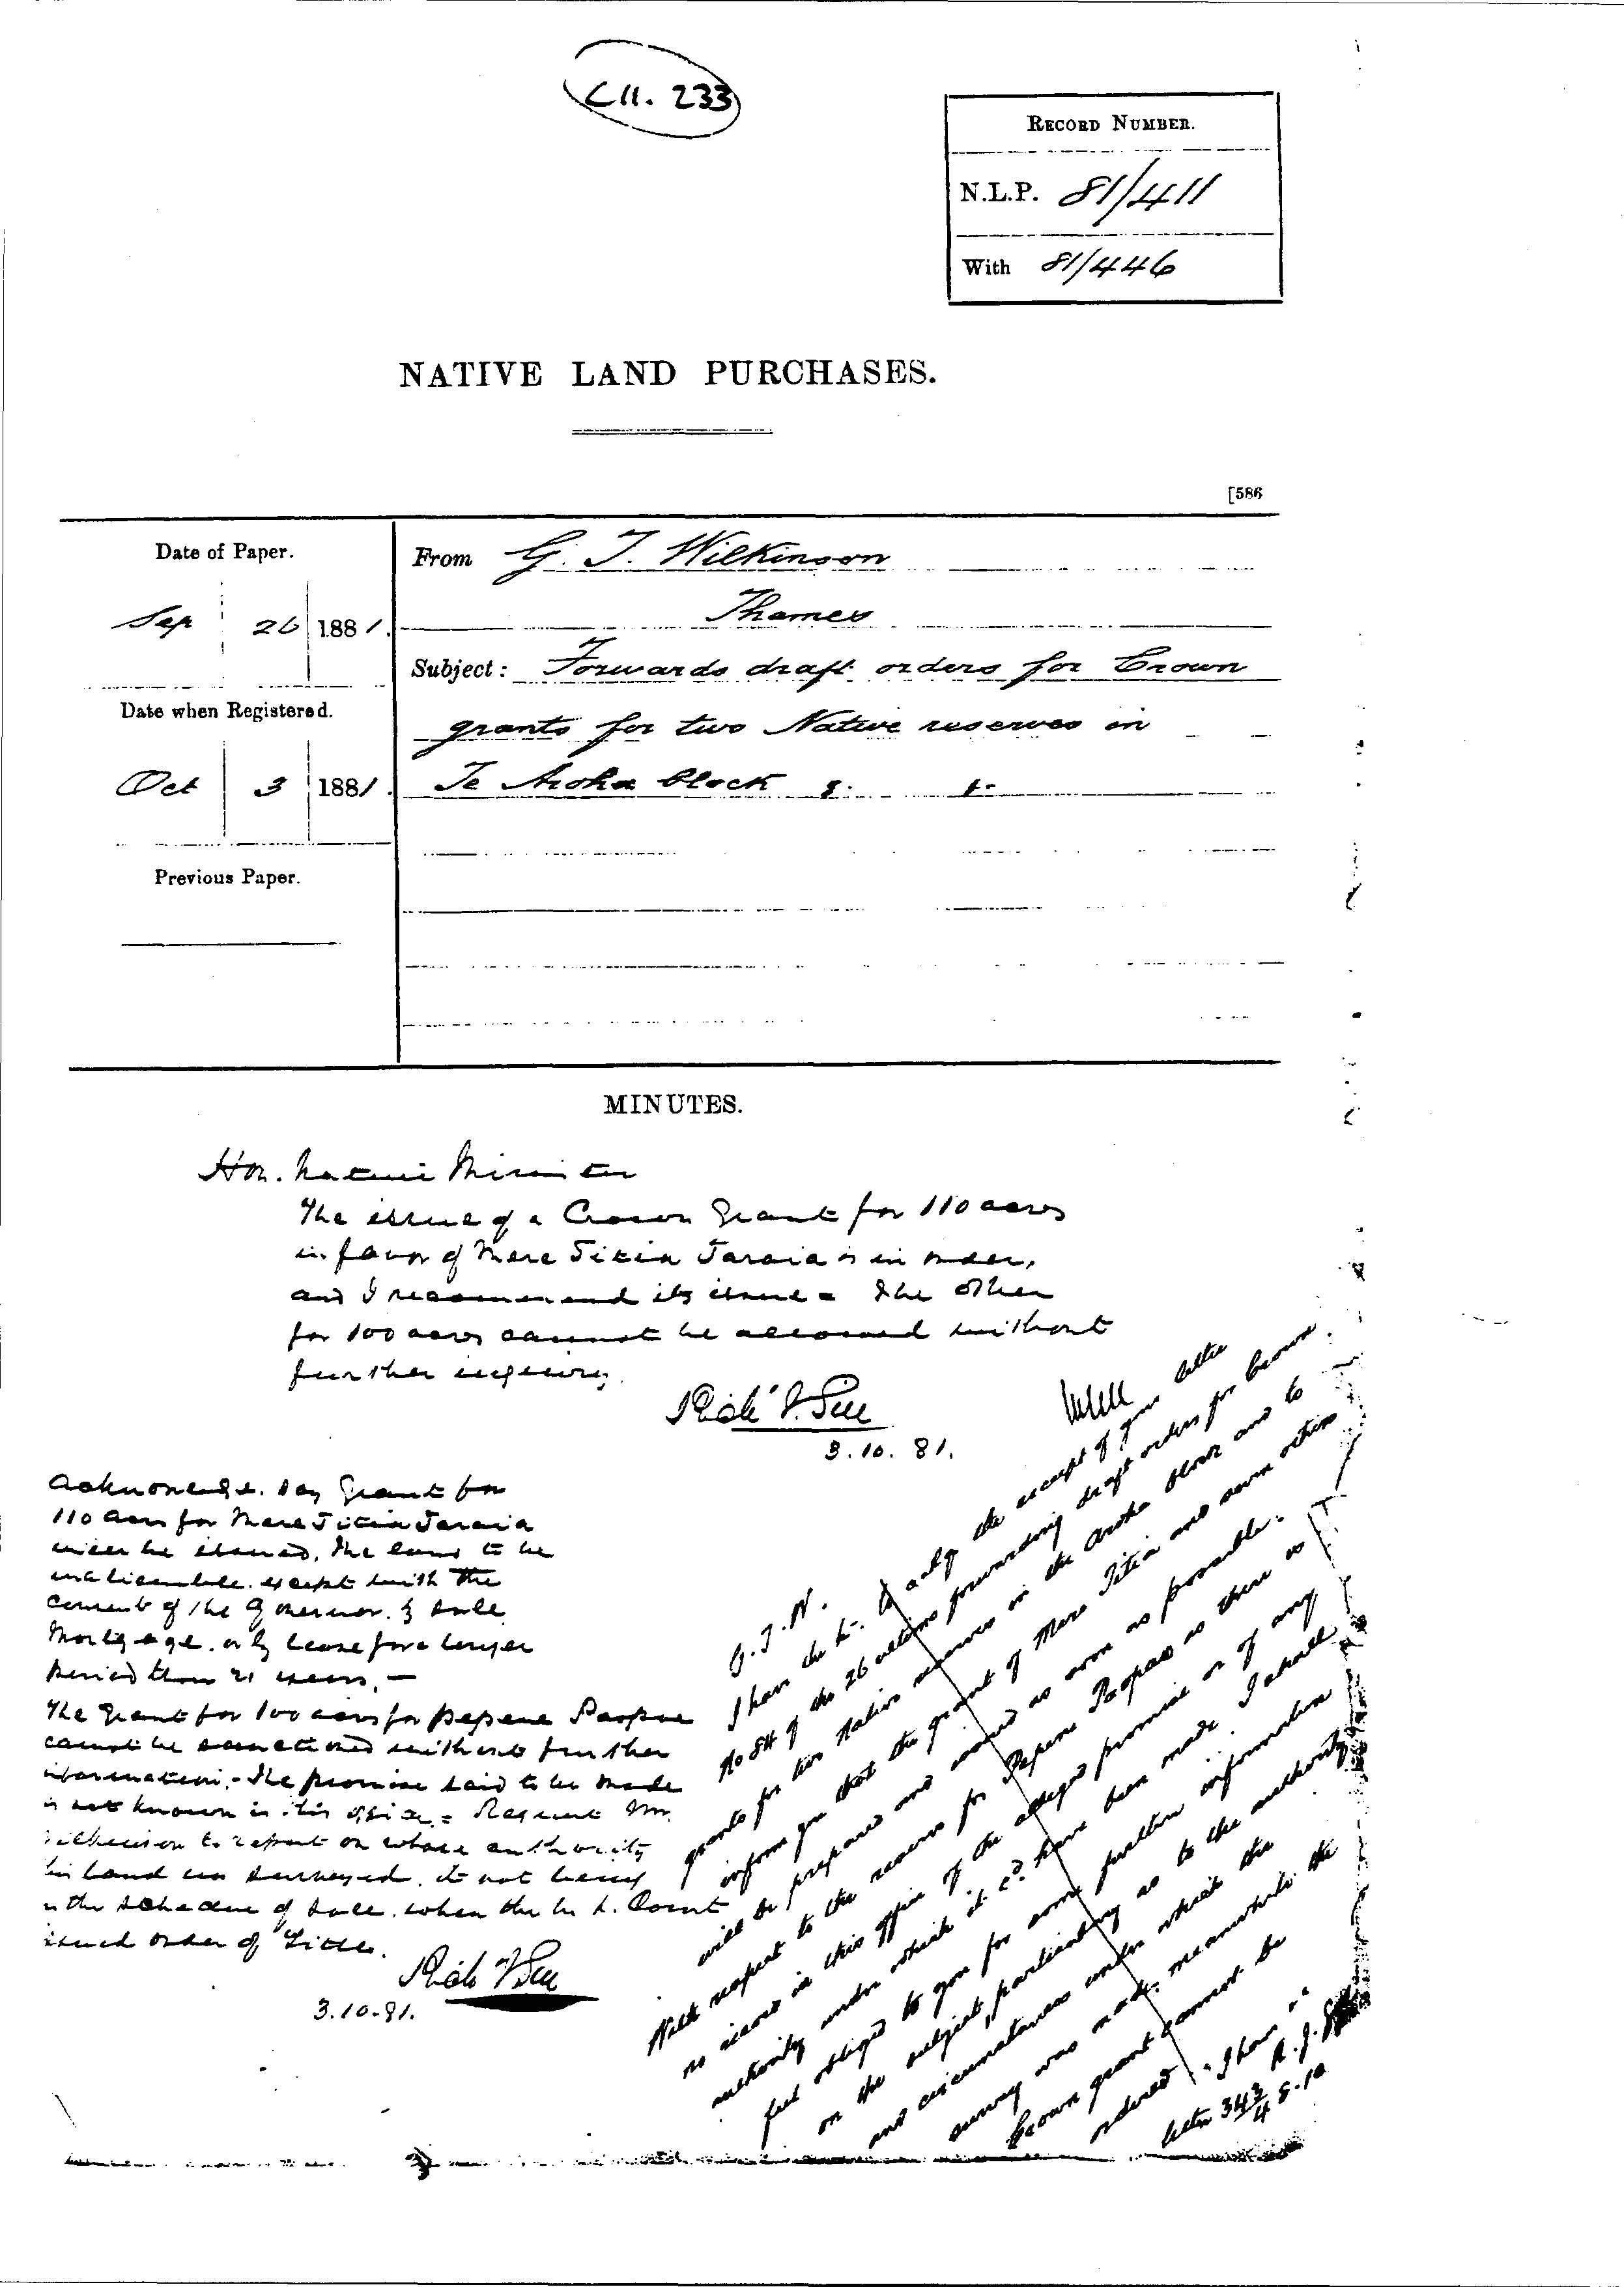 C11. 233
RECORD NUMBER.
N.L.P. 81/411
With 81/446
NATIVE LAND PURCHASES.
[586
Date of Paper.
Sep 26 1881.
Date when Registered.
Oct 3 1881.
Previous Paper.
From G. T. Wilkinson
Thames
Subject: Forwards draft orders for Crown
grants for two Native reserves in
Te Aroha block
MINUTES.
Hon. Native Minister
The issue of a Crown Grant for 110 acres
in favor of Mere Titia Taraia is in order,
and I recommend its issue - The other
for 100 acres cannot be allowed without
further inquiry.
Rich J. Gill
3.10.81.
Acknowledge. Say Grant for
110 acres for Mere Titia Taraia
will be issued, the land to be
inalienable except with the
consent of the Governor. by sale
Mortgage. or by lease for a longer
period than 21 years. -
The Grant for 100 acres for Pepene Paopao
cannot be sanctioned without further
information. - The promise said to be made
is not known in this office. - Request Mr.
Wilkinson to report on whose authority
this land was surveyed. it not being
in the schedule of sale. when the N. L. Court
issued order of Title.
Rich J Gill
3.10.81.
G. T. W.
I have the h. to ackg the receipt of your letter
No 84 of the 26 ultimo forwarding draft orders for Crown
grants for two Native reserves in the Aroha block and to
inform you that the grant of Mere Titia and
will be prepared and issued as soon as possible.
With respect to the reserve for Pepene Paopao as there is
no record in this office of the alleged promise or of any
authority under which it cd. have been made I shall
feel obliged to you for some further information
on the subject, particularly as to the authority
and circumstances under which the
survey was made. meanwhile the
Crown grant cannot be
ordered. - I have
R. J. G
8.10